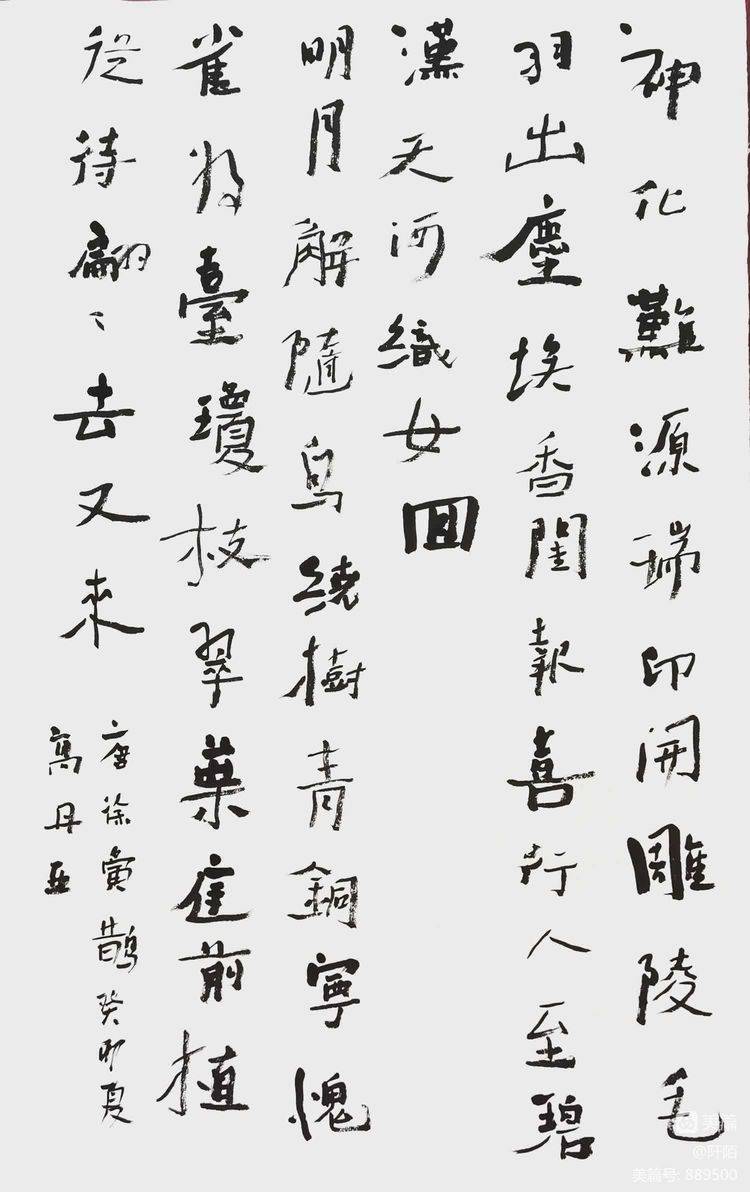 神化難源瑞印開雕陵毛
羽出塵埃香閨報喜行人至碧
漢天河織女回
明月解隨烏繞樹青銅寧愧
雀為臺瓊枝翠葉庭前植
從待翩〻去又來
唐徐寅鵲癸卯夏
萬丹亞
美篇
@阡陌
美篇号: 889500